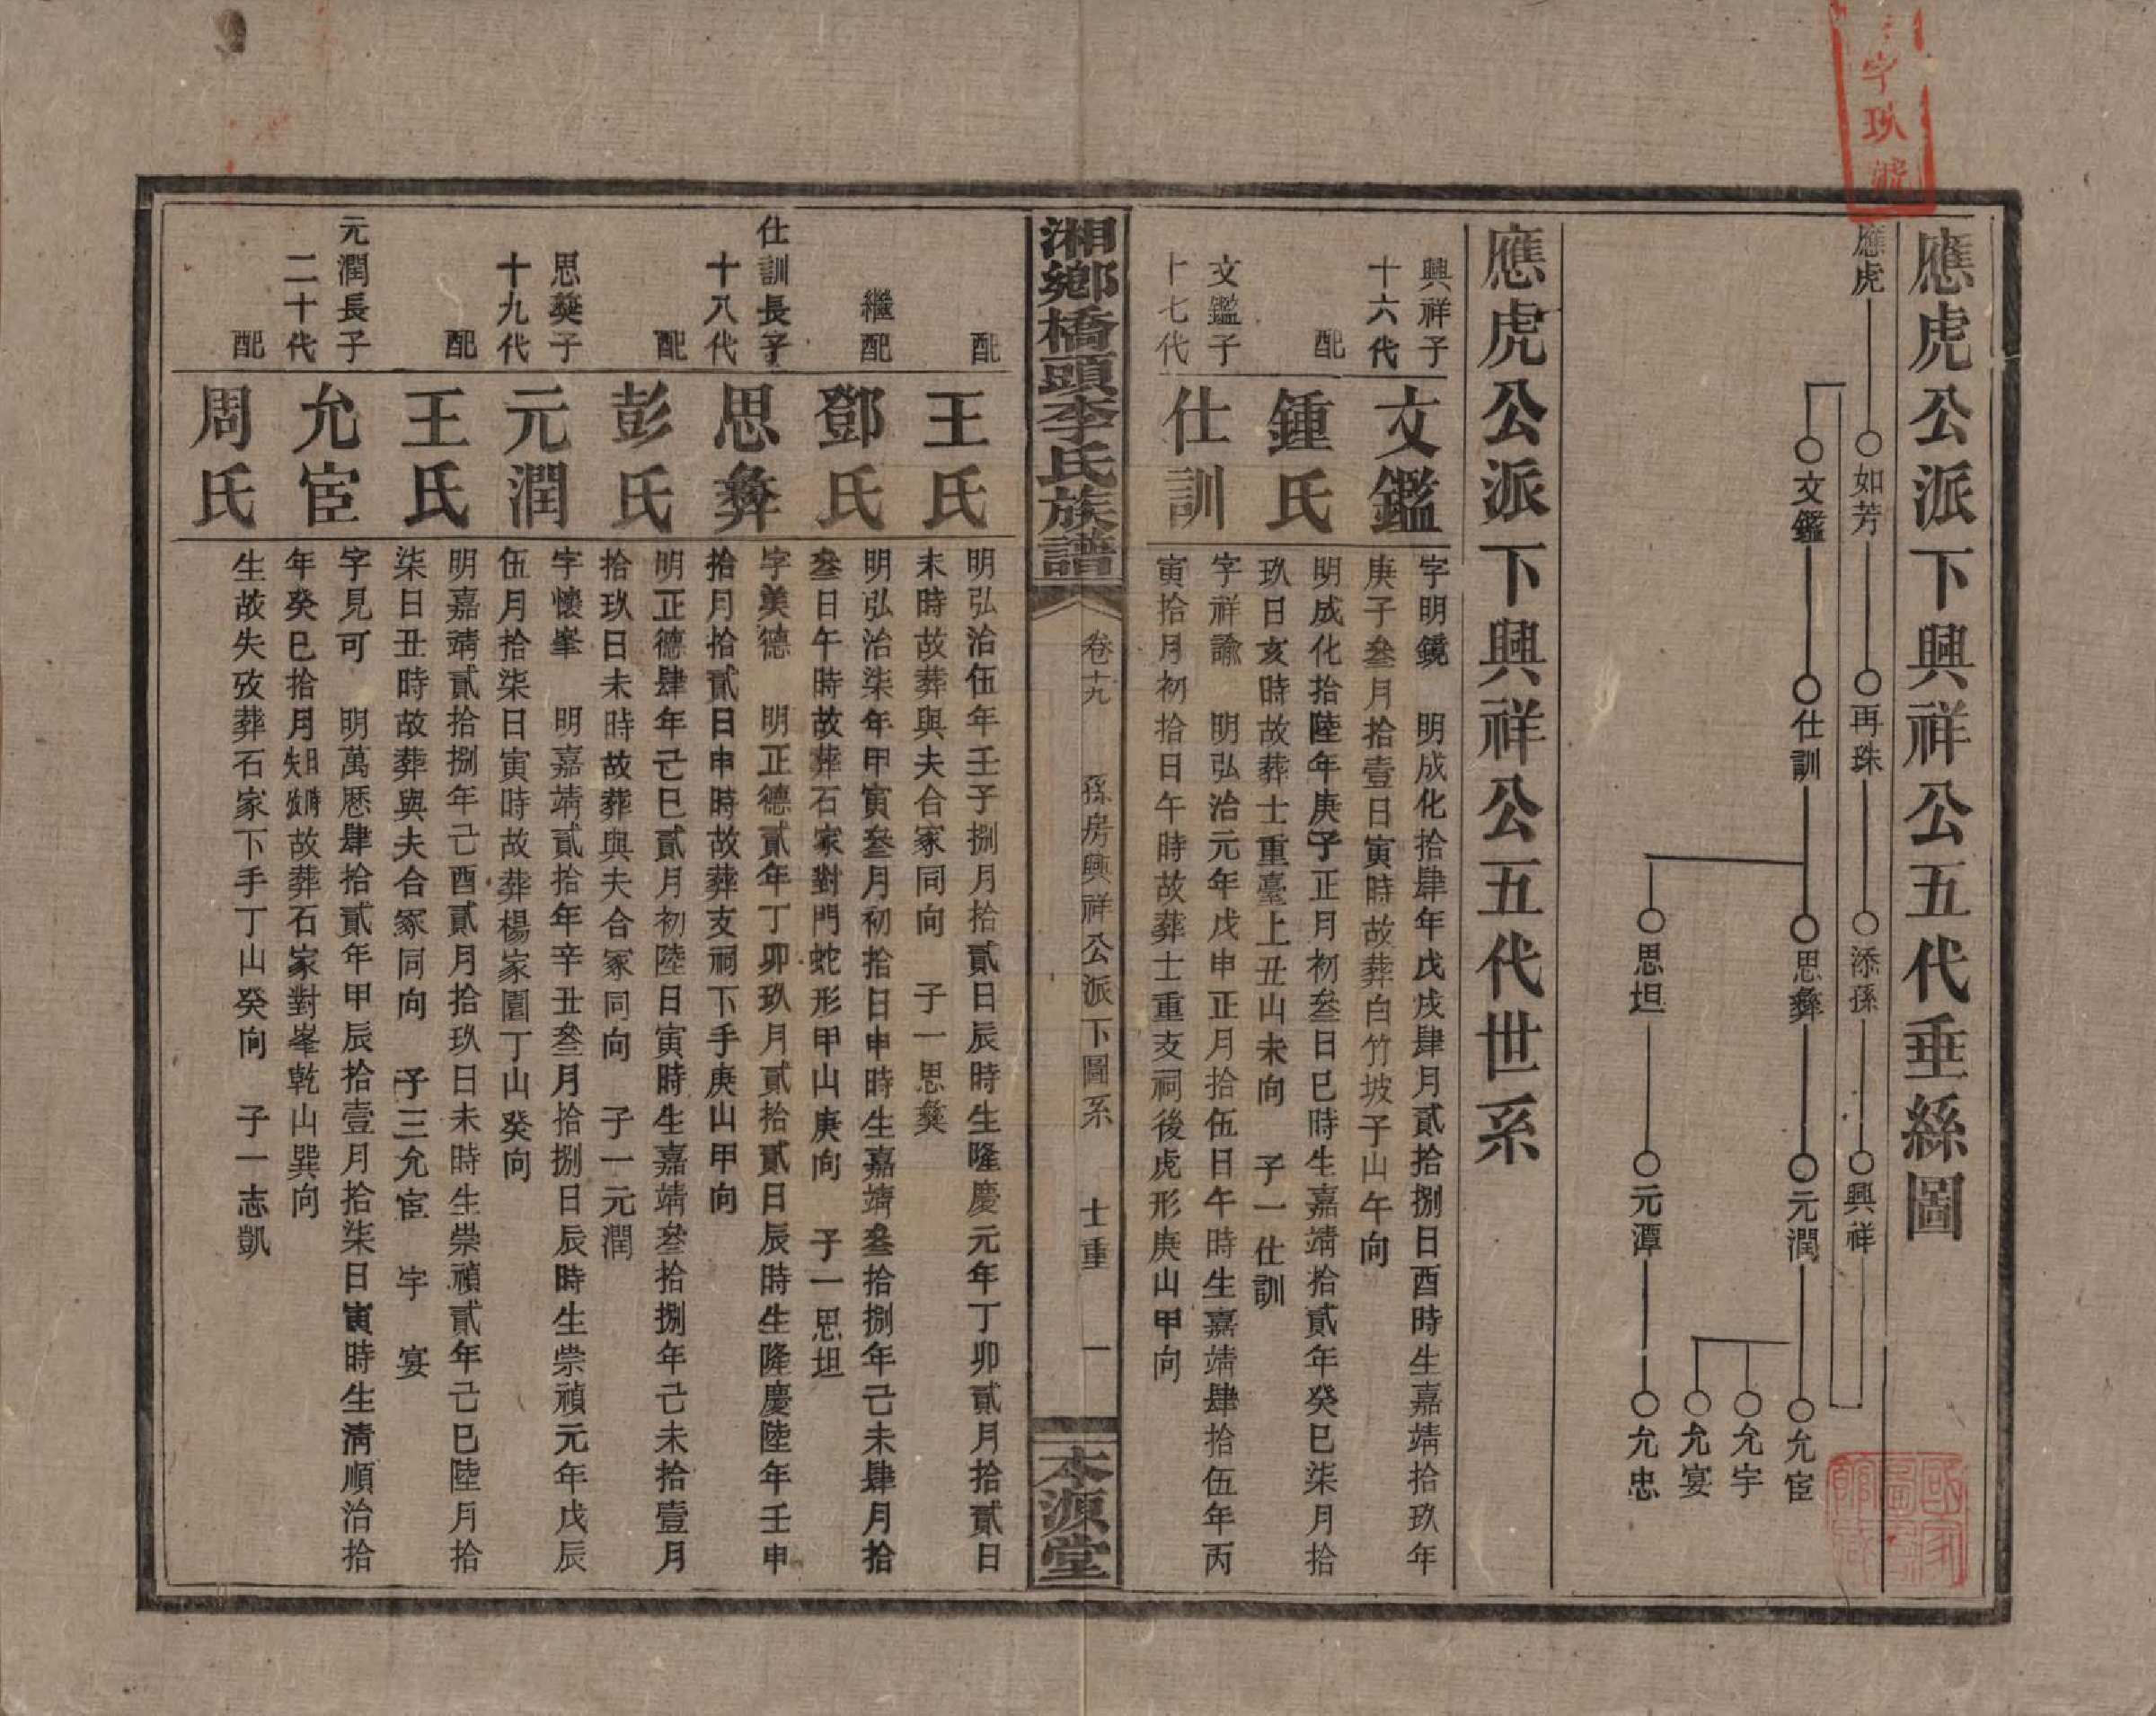 應虎公派下興祥公五代垂絲圖
應虎 如芳 再珠 添孫 興祥
文鑑 仕訓 思彝 元潤 允宦
允宇
允宴
思坦 元潭 允忠
應虎公派下興祥公五代世系
興祥子
十六代
文鑑
字明鏡 明成化拾肆年戊戌肆月貳拾捌日酉時生嘉靖拾玖年
庚子叁月拾壹日寅時故葬白竹坡子山午向
配
鍾氏
明成化拾陸年庚子正月初叁日巳時生嘉靖拾貳年癸巳柒月拾
玖日亥時故葬士重臺上丑山未向 子一仕訓
文鑑子
十七代
仕訓
字祥諭 明弘治元年戊申正月拾伍日午時生嘉靖肆拾伍年丙
寅拾月初拾日午時故葬士重支祠後虎形庚山甲向
湘鄉橋頭李氏族譜
卷十九 孫房興祥公派下圖系 士重 一
本源堂
配
王氏
明弘治伍年壬子捌月拾貳日辰時生隆慶元年丁卯貳月拾貳日
未時故葬與夫合冢同向 子一思彝
繼配
鄧氏
明弘治柒年甲寅叁月初拾日申時生嘉靖叁拾捌年己未肆月拾
叁日午時故葬石家對門蛇形甲山庚向 子一思坦
仕訓長子
十八代
思彝
字美德 明正德貳年丁卯玖月貳拾貳日辰時生隆慶陸年壬申
拾月拾貳日申時故葬支祠下手庚山甲向
配
彭氏
明正德肆年己巳貳月初陸日寅時生嘉靖叁拾捌年己未拾壹月
拾玖日未時故葬與夫合冢同向 子一元潤
思彝子
十九代
元潤
字懷峯 明嘉靖貳拾年辛丑叁月拾捌日辰時生崇禎元年戊辰
伍月拾柒日寅時故葬楊家園丁山癸向
配
王氏
明嘉靖貳拾捌年己酉貳月拾玖日未時生崇禎貳年己巳陸月拾
柒日丑時故葬與夫合冢同向 子三允宦 宇 宴
元潤長子
二十代
允宦
字見可 明萬厯肆拾貳年甲辰拾壹月拾柒日寅時生清順治拾
年癸巳拾月日時失攷故葬石家對峯乾山巽向
配
周氏
生故失攷葬石家下手丁山癸向 子一志凱
字玖號